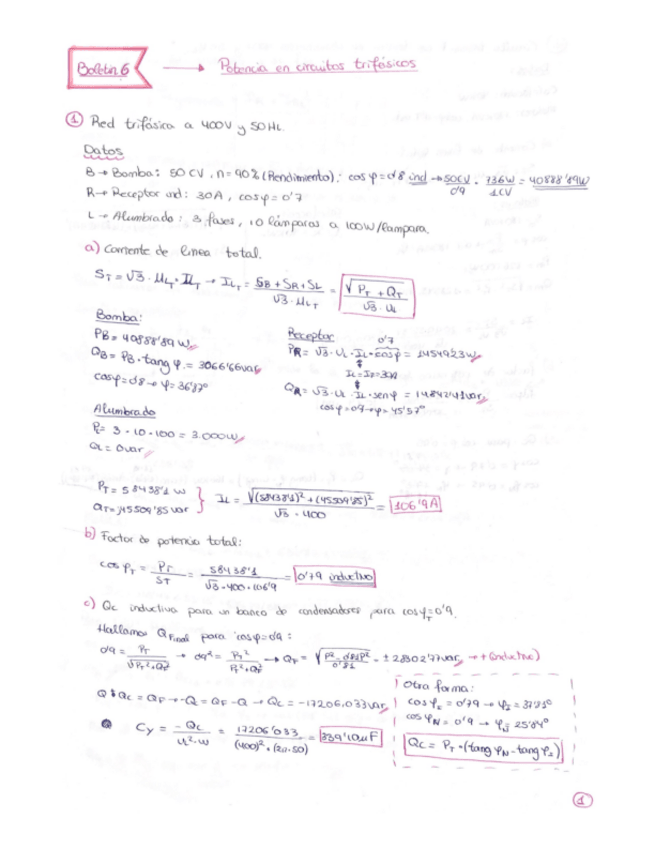 Boletín 6 → Potencia en circuitos trifásicos
① Red trifásica a 400V y 50Hz.
Datos
B → Bomba: 50 CV, n = 90% (Rendimiento); cos φ = 0'8 ind → 50CV/0'9 · 736W/1CV = 40888'89W
R → Receptor ind: 30A, cos φ = 0'7
L → Alumbrado: 3 fases, 10 lámparas a 100W/lampara.
a) Corriente de linea total.
S_T = √3 · U_LT · I_LT → I_LT = (S_B + S_R + S_L)/(√3 · U_LT) = √(P_T + Q_T)/(√3 · U_L)
Bomba:
P_B = 40888'89 W
Q_B = P_B · tang φ = 30666'66 var
cos φ = 0'8 → φ = 36'87°
Receptor
0'7
P_R = √3 · U_L · I_L · cos φ = 14549'23 W
I_L = I_F = 30A
Q_R = √3 · U_L · I_L · sen φ = 14842'41 var
cos φ = 0'7 → φ = 45'57°
Alumbrado
P_L = 3 · 10 · 100 = 3.000 W
Q_L = 0 var
P_T = 58438'1 W
Q_T = 45509'85 var
I_L = √((58438'1)² + (45509'85)²)/(√3 · 400) = 106'9 A
b) Factor de potencia total:
cos φ_T = P_T/S_T = 58438'1/(√3 · 400 · 106'9) = 0'79 inductivo
c) Qc inductiva para un banco de condensadores para cos φ_T = 0'9.
Hallamos Q_Final para cos φ = 0'9:
0'9 = P_T/√(P_T² + Q_F²) → 0'9² = P_T²/(P_T² + Q_F²) → Q_T = √((P² - 0'81P²)/0'81) = ± 28302'77 var → + (inductivo)
Q + Qc = Q_F → -Q = Q_F - Q → Qc = -17206,033 var
C_Y = -Qc/(U² · w) = 17206'033/((400)² · (2π·50)) = 339'10 uF
Otra forma:
cos φ_I = 0'79 → φ_I = 37'81°
cos φ_N = 0'9 → φ_N = 25'84°
Qc = P_T · (tang φ_N - tang φ_I)
1